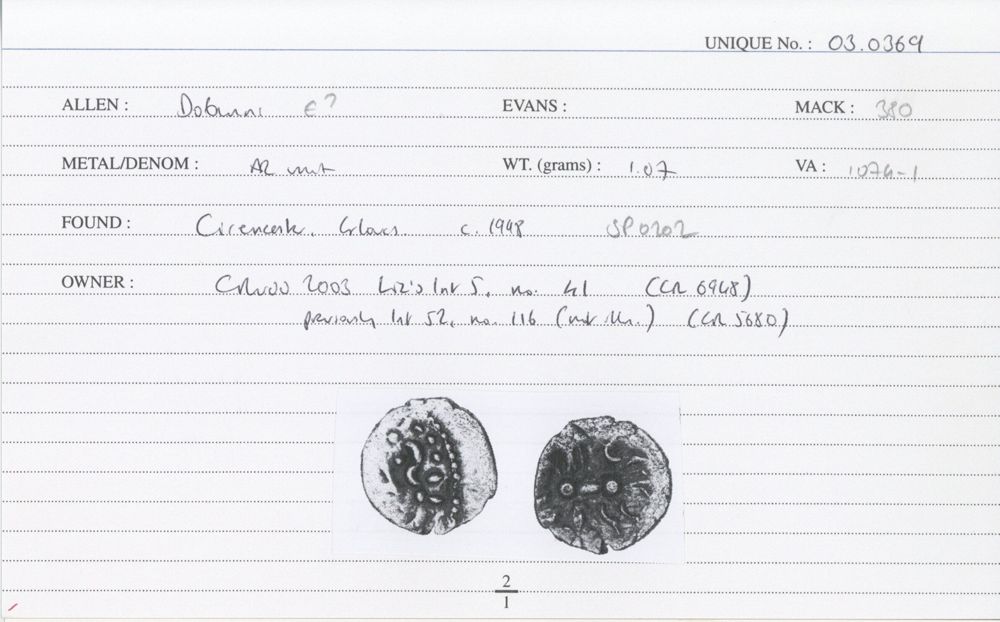 UNIQUE No. : 03.0369
ALLEN : Dobunni E? EVANS : MACK : 380
METAL/DENOM : AR unit WT. (grams) : 1.07 VA : 1074-1
FOUND : Cirencester, Gloucs c. 1948 SP0202
OWNER : 2003 Liz's List 5, no. 41 (CR 6948)
previously list 52, no. 116 (not illus.) (CR 5680)
2
1